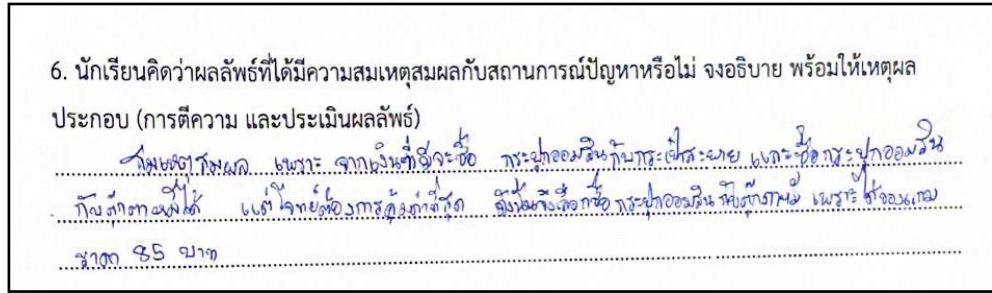 6. นักเรียนคิดว่าผลลัพธ์ที่ได้มีความสมเหตุสมผลกับสถานการณ์ปัญหาหรือไม่ จงอธิบาย พร้อมให้เหตุผล
ประกอบ (การตีความ และประเมินผลลัพธ์)
สมเหตุสมผล เพราะ จากเงินที่มีจะซื้อ กระปุกออมสินกับกระเป๋าสะพาย และซื้อกระปุกออมสิน
กับตุ๊กตาหมีได้ แต่โจทย์ต้องการคุ้มค่าที่สุด ดังนั้นจึงเลือกซื้อกระปุกออมสิน กับตุ๊กตาหมี เพราะได้ของแถม
ราคา 85 บาท